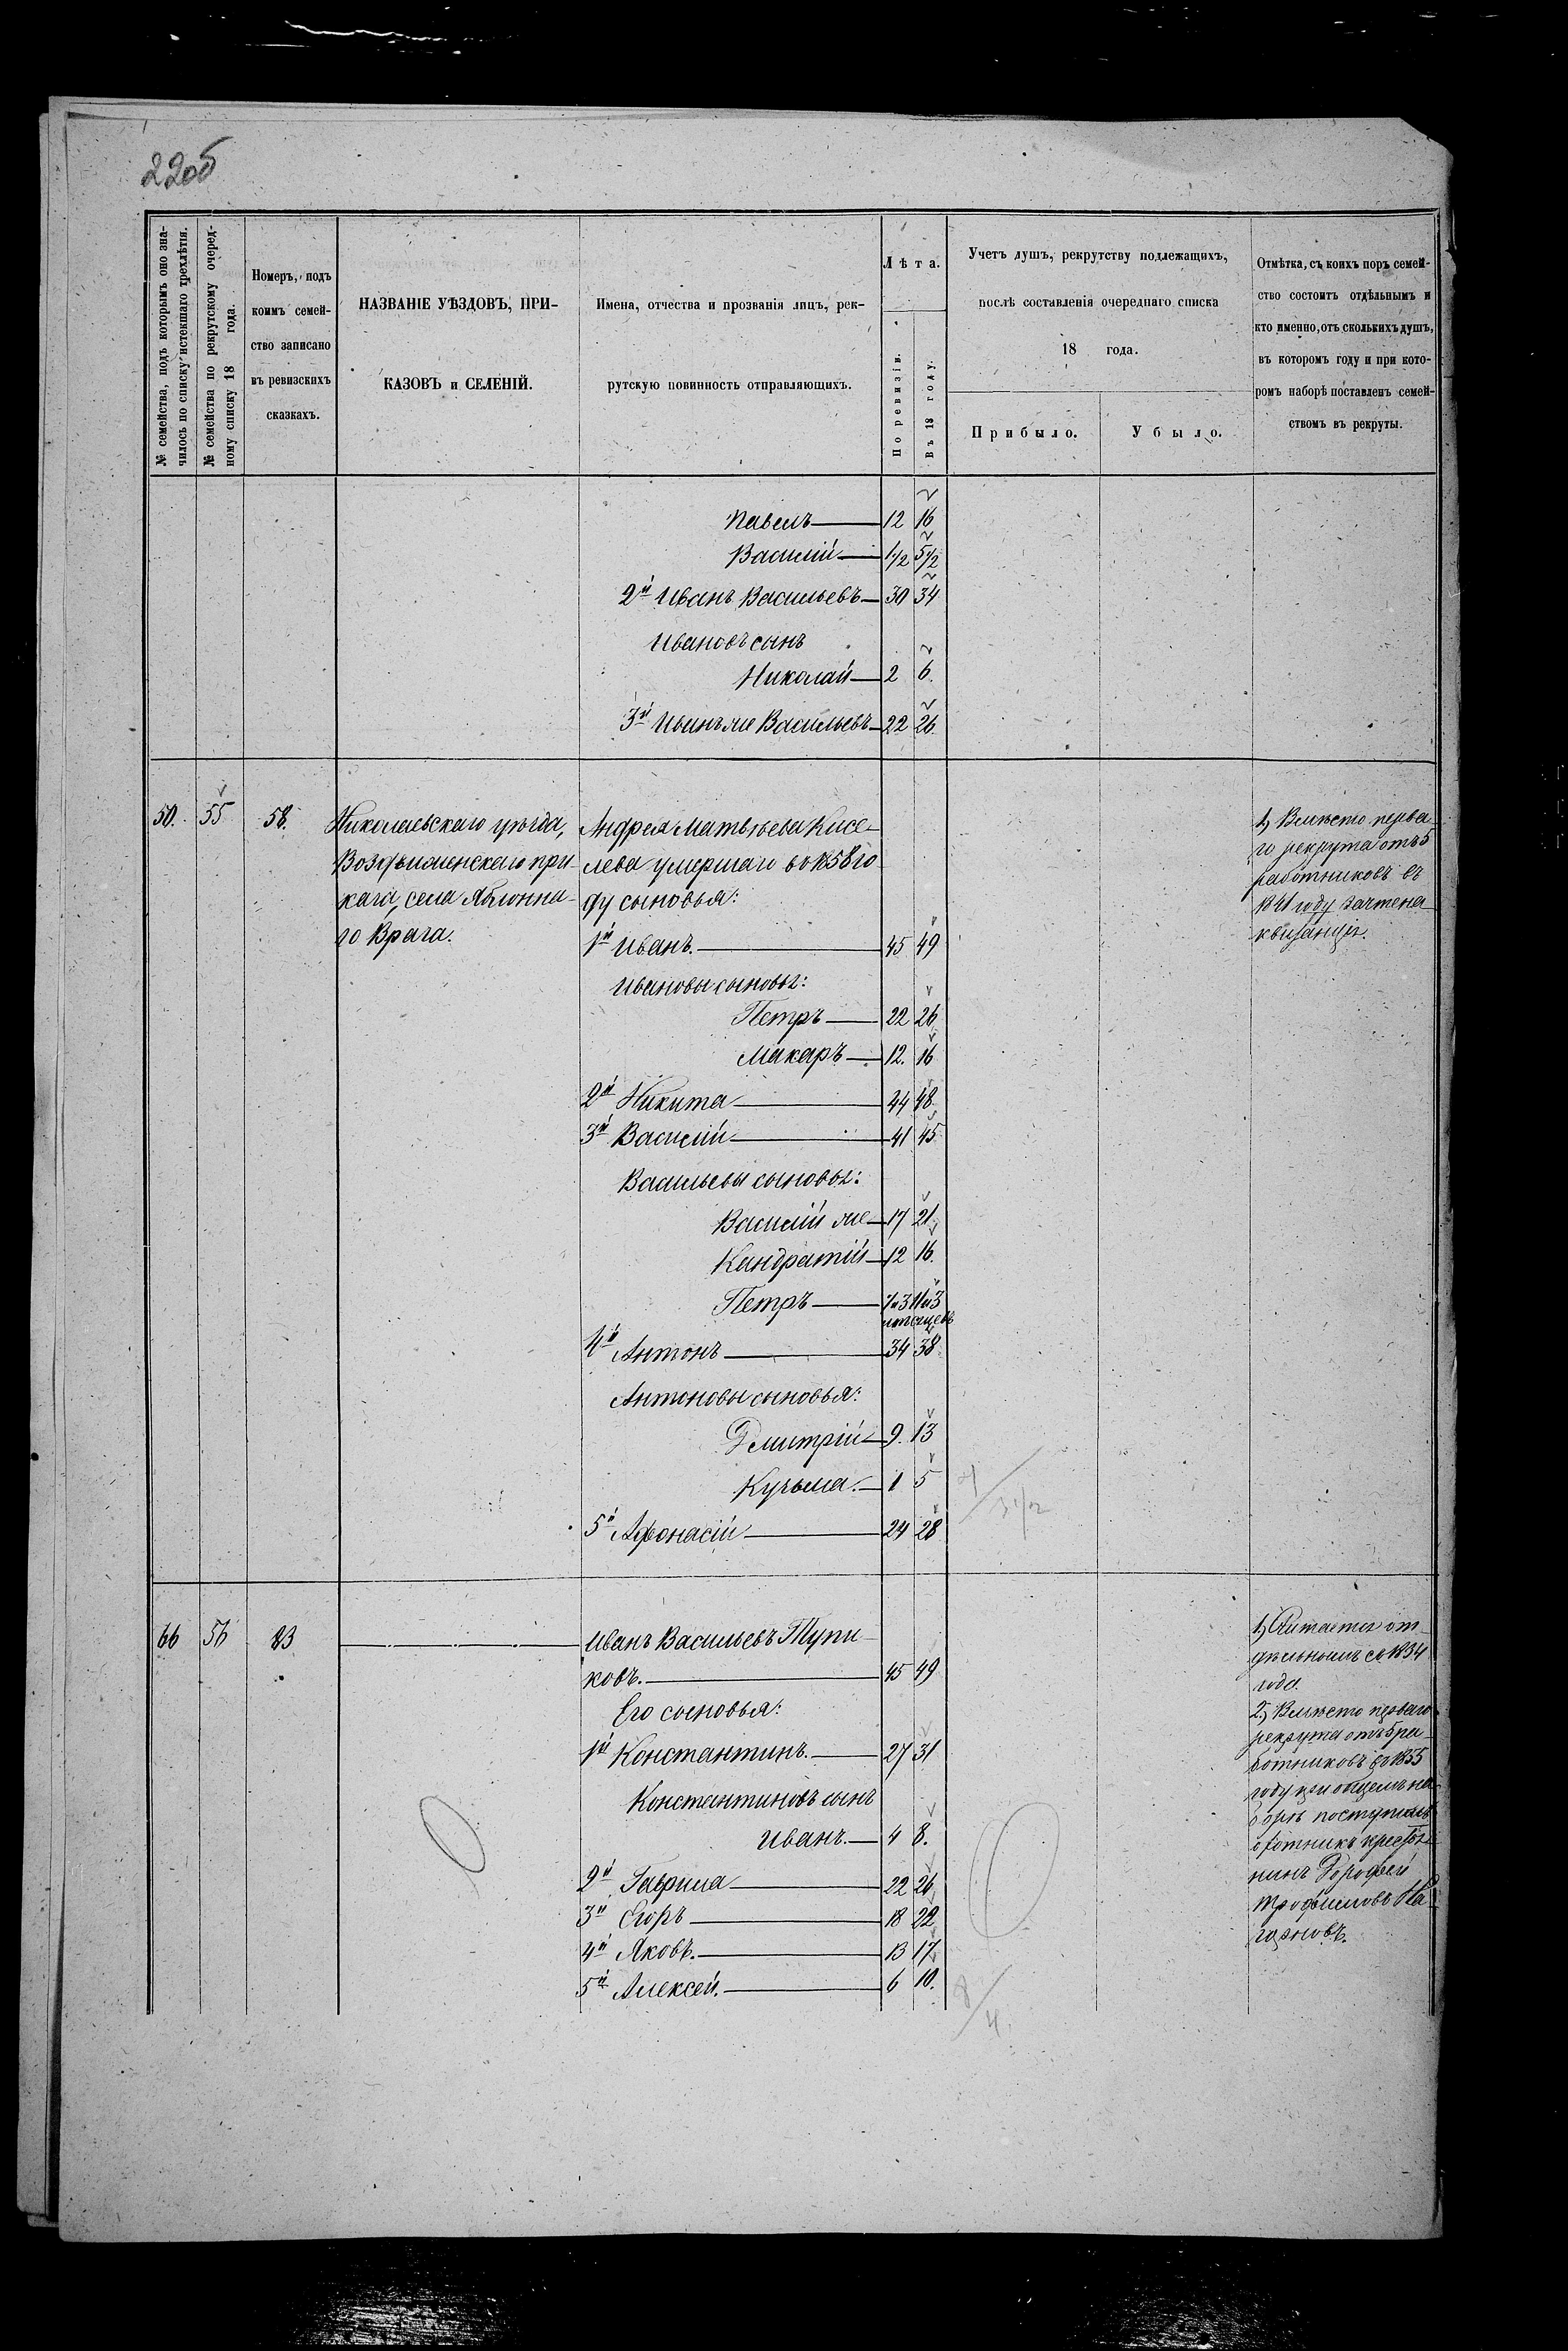 22об
№ семейства, подъ которымъ оно зна-
чилось по списку истекшаго трехлѣтія.
№ семейства по рекрутскому очеред-
ному списку 18 года.
Номеръ, подъ
коимъ семей-
ство записано
въ ревизскихъ
сказкахъ.
НАЗВАНІЕ УѢЗДОВЪ, ПРИ-
КАЗОВЪ и СЕЛЕНІЙ.
Имена, отчества и прозванія лицъ, рек-
рутскую повинность отправляющихъ.
Лѣта.
По ревизіи.
Въ 18 году.
Учетъ душъ, рекрутству подлежащихъ,
послѣ составленія очереднаго списка
18 года.
Прибыло.
Убыло.
Отмѣтка, съ коихъ поръ семей-
ство состоитъ отдѣльнымъ и
кто именно, отъ сколькихъ душъ,
въ которомъ году и при кото-
ромъ наборѣ поставленъ семей-
ствомъ въ рекруты.
Павелъ 12 16
Василій 1/2 5 1/2
2й Иванъ Васильевъ 30 34
Ивановъ сынъ
Николай 2 6.
3й Иванъ же Васильевъ 22 26.
50. 55 58.
Николаевскаго уѣзда,
Воздвиженскаго при-
каза, села Яблонна-
го Врага.
Андрея Матвѣева Кисе-
лева умершаго въ 1858 го-
ду сыновья:
1й Иванъ. 45 49
Ивановы сыновья:
Петръ 22 26
Макаръ 12. 16
2й Никита 44 48
3й Василій 41 45
Васильевы сыновья:
Василій же 17 21
Кандратій 12 16.
Петръ 7 и 3 11 и 3
мѣсяцевъ
4й Антонъ 34 38
Антоновы сыновья:
Дмитрій 9. 13
Кузьма. 1 5
5й Афонасій 24 28
1, Вмѣсто перва-
го рекрута отъ 5
работниковъ въ
1841 году зачтена
квитанція.
66 56 23
Иванъ Васильевъ Тупи-
ковъ. 45 49
Его сыновья:
1й Константинъ. 27 31
Константиновъ сынъ
Иванъ. 4 8.
2й Гаврила 22 26
3й Егоръ 18 22
4й Яковъ. 13 17
5й Алексей. 6 10.
8/4.
1, Считается от-
дѣльнымъ съ 1834
года.
2, Вмѣсто перваго
рекрута отъ 5 ра-
ботниковъ въ 1855
году при общемъ на-
борѣ поступилъ
охотникъ крестья-
нинъ
Трофимовъ